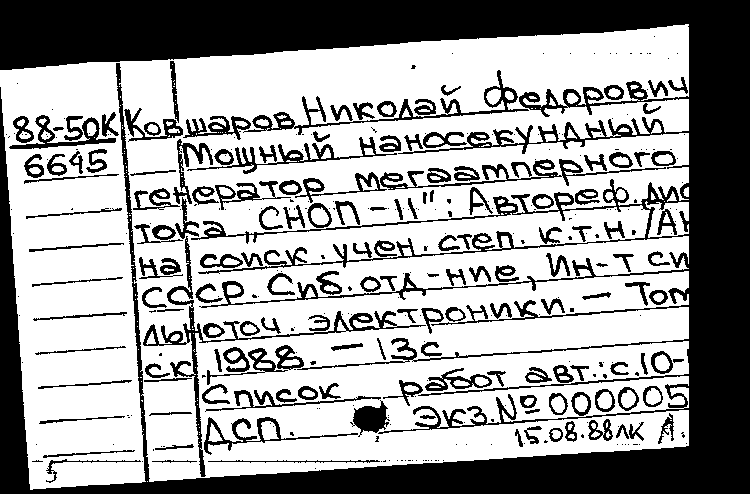 88-50К Ковшаров, Николай Федорович
6645 Мощный наносекундный
генератор мегаамперного
тока „СНОП-II": Автореф. дис
на соиск. учен. степ. к.т.н. /АН
СССР. Сиб. отд-ние, Ин-т си
льноточ. электроники. — Том
ск, 1988. — 13с.
Список работ авт.: с.10-
ДСП. Экз.№ 000005
15.08.88 ЛК А.
5